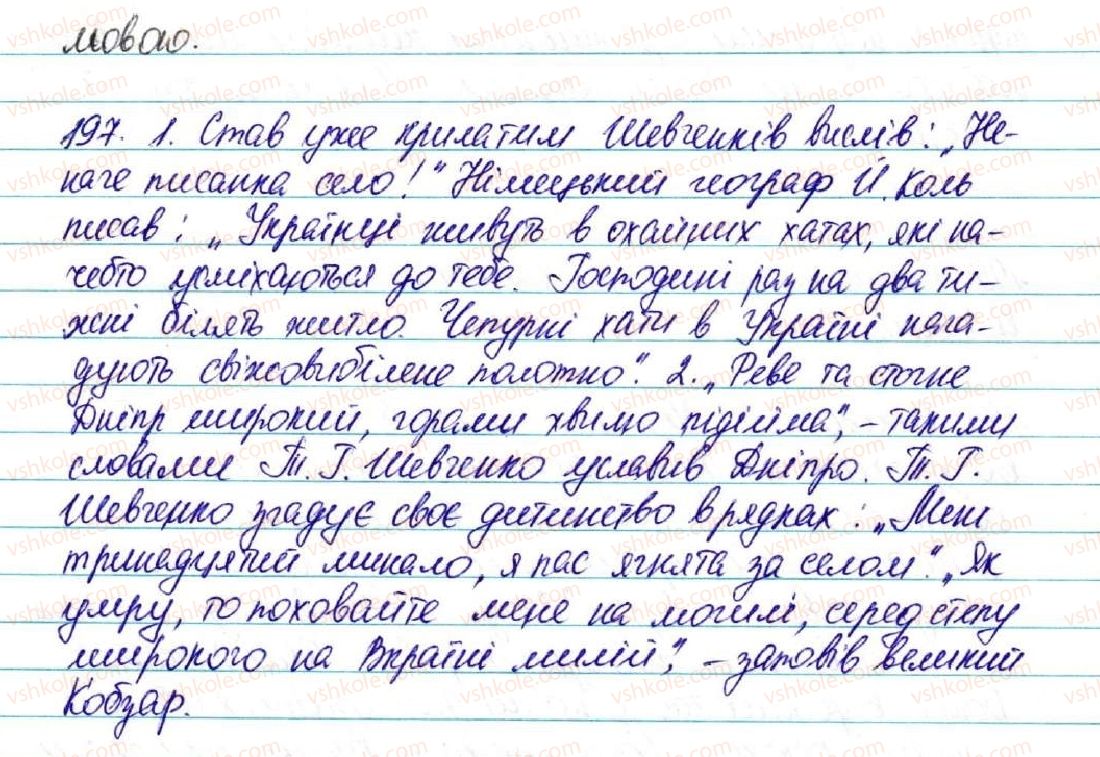 мовою.
197. 1. Став уже крилатим Шевченків вислів: „Не-
наче писанка село!" Німецький географ Й. Коль
писав: „Українці живуть в охайних хатах, які на-
чебто усміхаються до тебе. Господині раз на два ти-
жні білять житло. Чепурні хати в Україні нага-
дують свіжовибілене полотно". 2. „Реве та стогне
Дніпр широкий, горами хвилю підійма", – такими
словами Т. Г. Шевченко уславив Дніпро. Т. Г.
Шевченко згадує своє дитинство в рядках: „Мені
тринадцятий минало, я пас ягнята за селом". „Як
умру, то поховайте мене на могилі, серед степу
широкого на Вкраїні милій", – заповів великий
Кобзар.